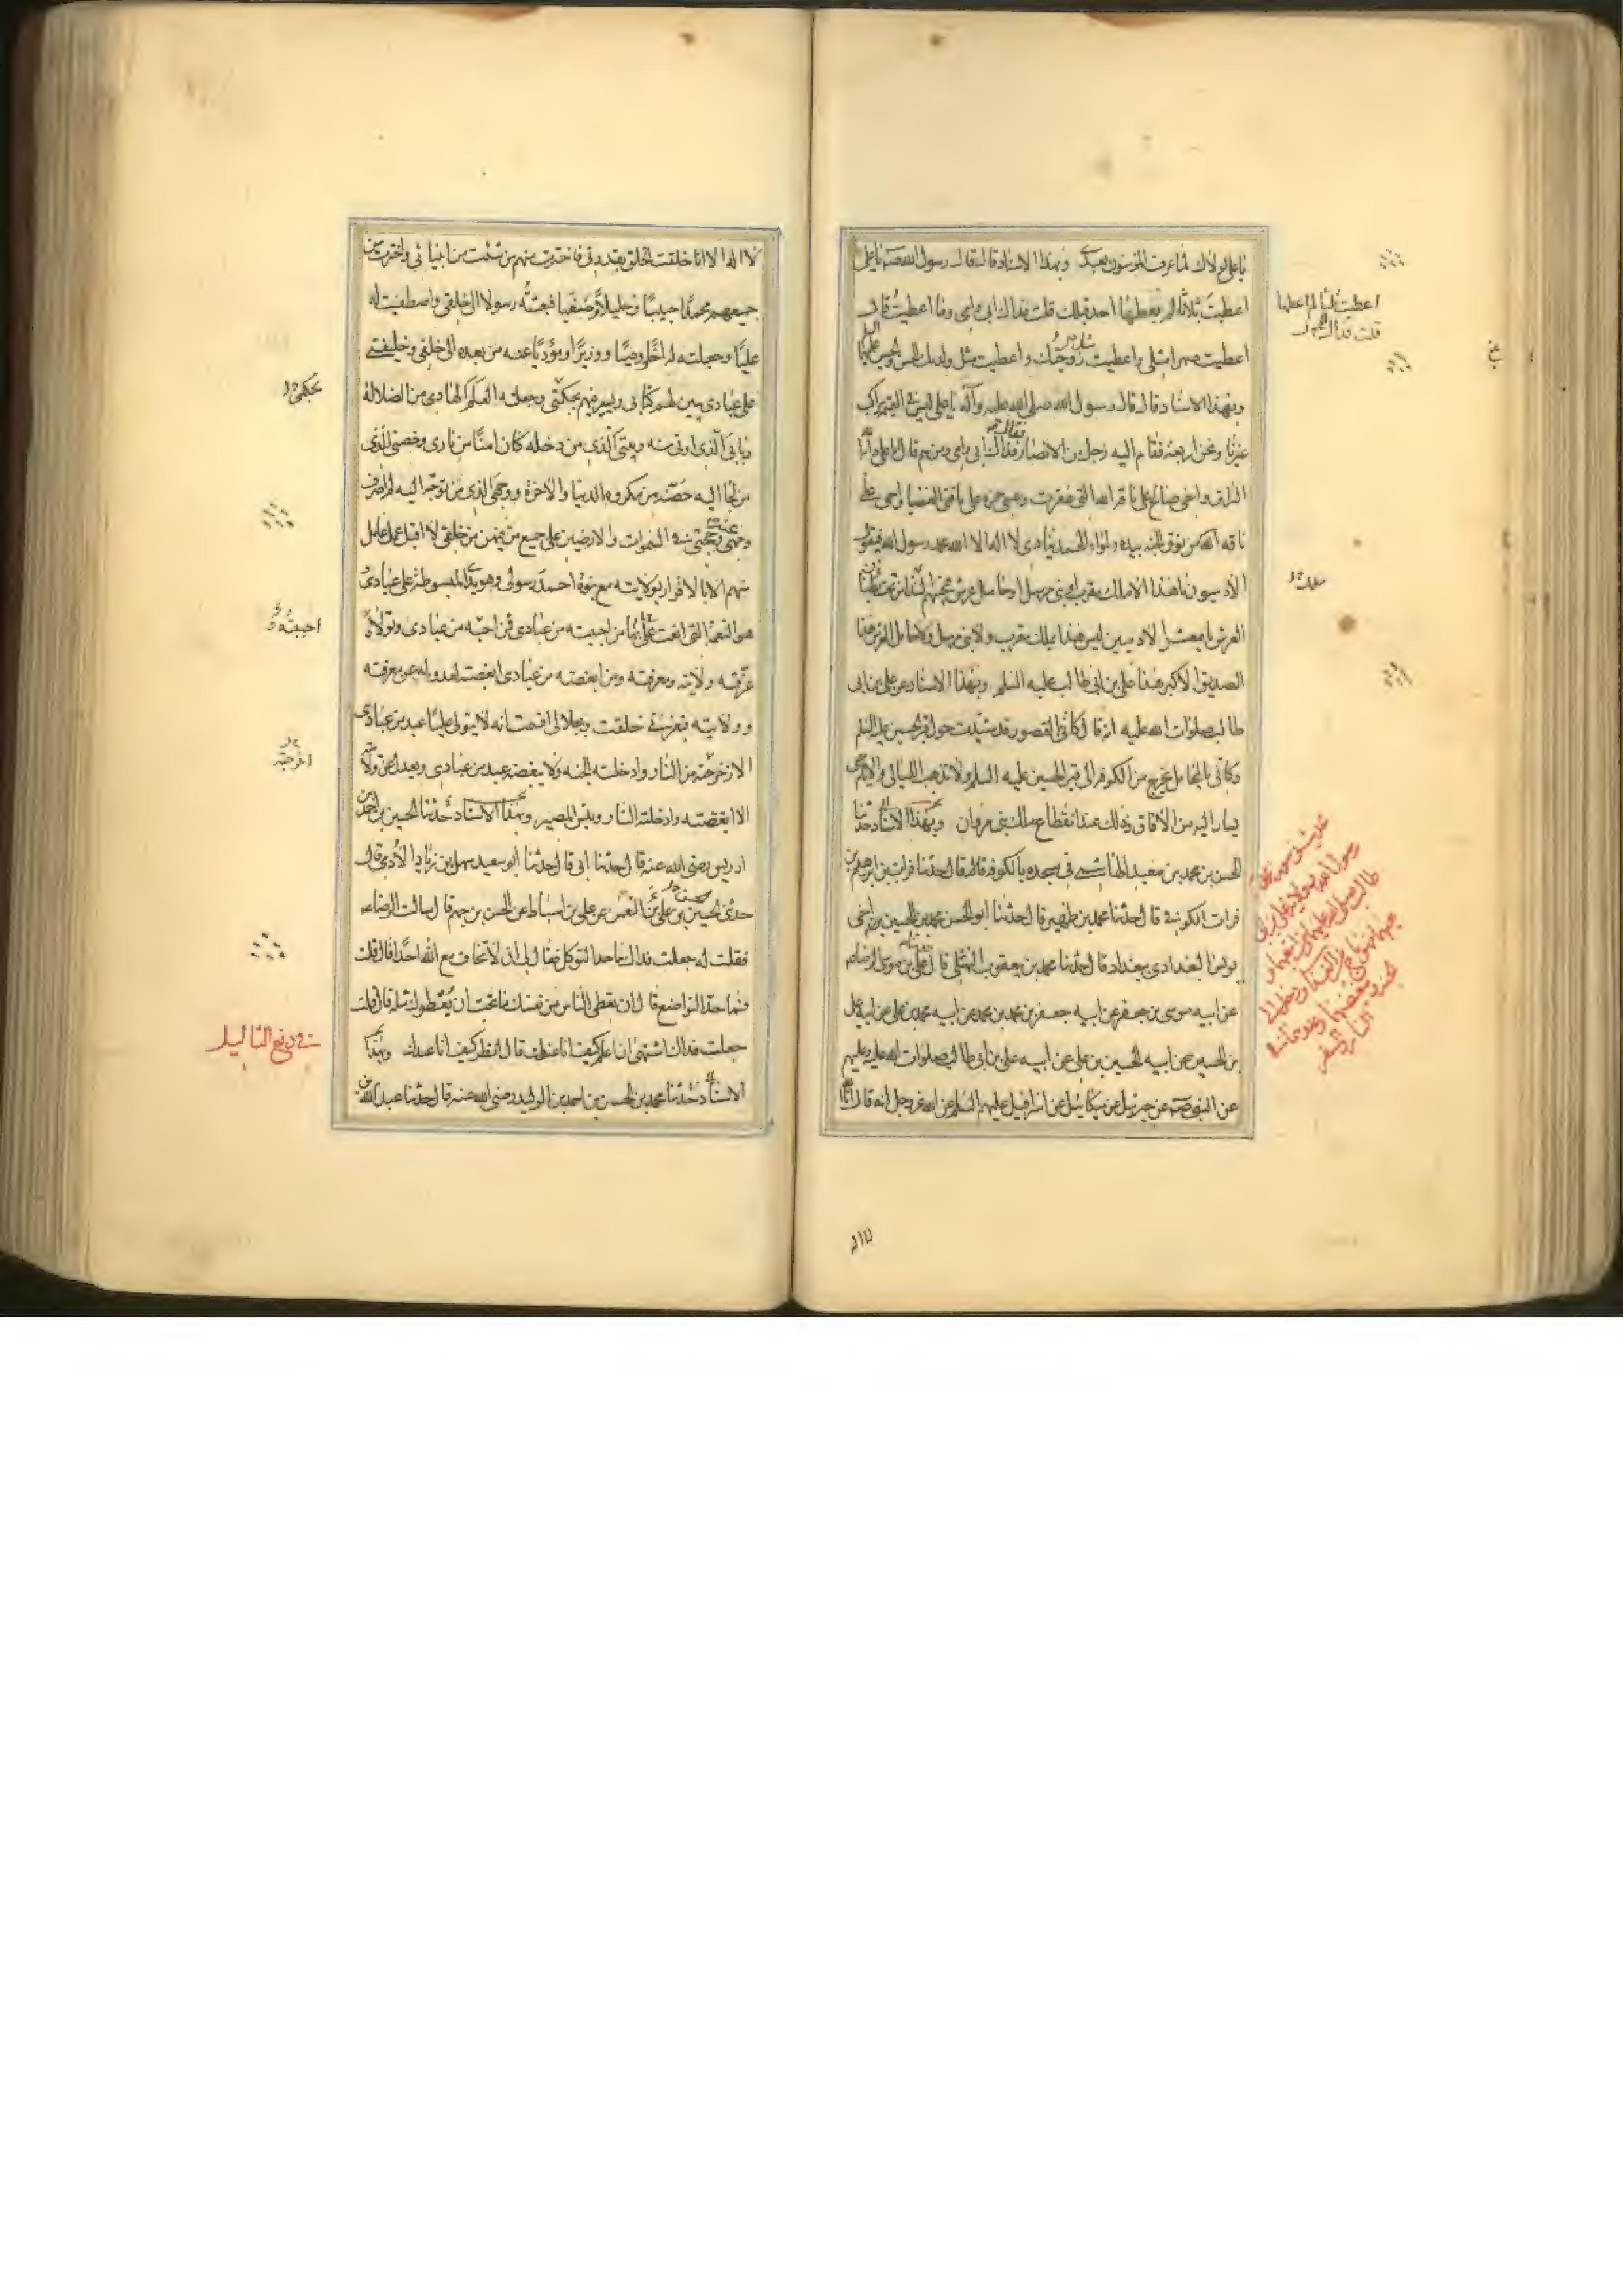 يا علي لولاك لما عرف المؤمنون بعدي وبهذا الاسناد قال قال رسول الله صلى يا علي
اعطيت ثلاثا لم يعطها احد قبلك قلت فداك ابي وامي وما اعطيت قال
اعطيت صهرا مثلي واعطيت مثل زوجتك واعطيت مثل ولديك الحسن والحسين عليهما السلم
وبهذا الاسناد قال قال رسول الله صلى الله عليه وآله يا علي ليس في القيمة راكب
غيرنا ونحن اربعة فقام اليه رجل من الانصار فقال فداك ابي وامي ومن هم قال انا على دابة الله
البراق واخي صالح على ناقة الله التي عقرت وعمي حمزة على ناقتي العضبا واخي علي على
ناقة من نوق الجنة بيده لواء الحمد ينادي لا اله الا الله محمد رسول الله فيقول
الآدميون ما هذا الا ملك مقرب او نبي مرسل او حامل عرش فيجيبهم ملك من تحت بطنان
العرش يا معشر الآدميين ليس هذا ملك مقرب ولا نبي مرسل ولا حامل العرش هذا
الصديق الاكبر هذا علي بن ابي طالب عليه السلم وبهذا الاسناد عن علي بن ابي
طالب صلوات الله عليه انه قال كاني بالقصور قد شيدت حول قبر الحسين عليه السلم
وكاني بالمحامل تخرج من الكوفة الى قبر الحسين عليه السلم ولا تذهب الليالي والايام حتى
يسار اليه من الآفاق وذلك عند انقطاع ملك بني مروان وبهذا الاسناد حدثنا
الحسن بن محمد بن سعيد الهاشمي في مسجده بالكوفة قال حدثنا فرات بن ابرهيم بن
فرات الكوفي قال حدثنا محمد بن ظهير قال حدثنا ابو الحسن محمد بن الحسين بن اخي
يونس البغدادي ببغداد قال حدثنا محمد بن يعقوب النهشلي قال حدثنا علي بن موسى الرضا
عن ابيه موسى بن جعفر عن ابيه جعفر بن محمد عن ابيه محمد بن علي عن ابيه علي
بن الحسين عن ابيه الحسين بن علي عن ابيه علي بن ابي طالب صلوات الله عليه وعليهم
عن النبي صلى عن جبرئيل عن ميكائيل عن اسرافيل عليهم السلم عن الله عز وجل انه قال انا الله
اعطيت ثلثا لم اعطها
قلت فداك
ملك
لا اله الا انا خلقت الخلق بقدرتي فاخترت منهم من شئت من انبيائي واخترت من
جميعهم محمدا حبيبا وخليلا وصفيا فبعثته رسولا الى خلقي واصطفيت له
عليا وجعلته له اخا ووصيا ووزيرا ومؤديا عنه من بعده الى خلقي وخليفتي
على عبادي يبين لهم كتابي ويسير فيهم بحكمتي وجعلته العلم الهادي من الضلالة
وبابي الذي اوتى منه وبيتي الذي من دخله كان امنا من ناري وحصني الذي
من لجأ اليه حصنه من مكروه الدنيا والآخرة ووجهي الذي من توجه اليه لم اصرف
وجهي عنه وحجتي في السموات والارضين على جميع من فيهن من خلقي لا اقبل عمل عامل
منهم الا بالاقرار بولايته مع نبوة احمد رسولي وهو يدي المبسوطة على عبادي
هو النعمة التي انعمت بها على من احببته من عبادي فمن احبه من عبادي وتولاه
عرفته ولايته ومعرفته ومن ابغضه من عبادي ابغضته لعدوله عن معرفته
وولايته فبعزتي خلقت وبجلالي اقسمت انه لا يتولى عليا عبد من عبادي
الا زحزحته من النار وادخلته الجنة ولا يبغضه عبد من عبادي ويعدل عن ولايته
الا ابغضته وادخلته النار وبئس المصير وبهذا الاسناد حدثنا الحسين بن احمد بن
ادريس رضي الله عنه قال حدثنا ابي قال حدثنا ابو سعيد سهل بن زياد الآدمي قال
حدثني الحسين بن علي بن النعمن عن علي بن اسباط عن الحسن بن جهم قال سالت الرضا
فقلت له جعلت فداك ما حد التوكل فقال لي ان لا تخاف مع الله احدا قال قلت
وما حد التواضع قال ان تعطي الناس من نفسك ما تحب ان يعطوك مثله قال قلت
جعلت فداك اشتهي ان اعلم كيف انا عندك قال انظر كيف انا عندك وبهذا
الاسناد حدثنا محمد بن الحسن بن احمد بن الوليد رضي الله عنه قال حدثنا عبد الله بن
بحكمي
احببته
اخرجته
في دفع الثاليل